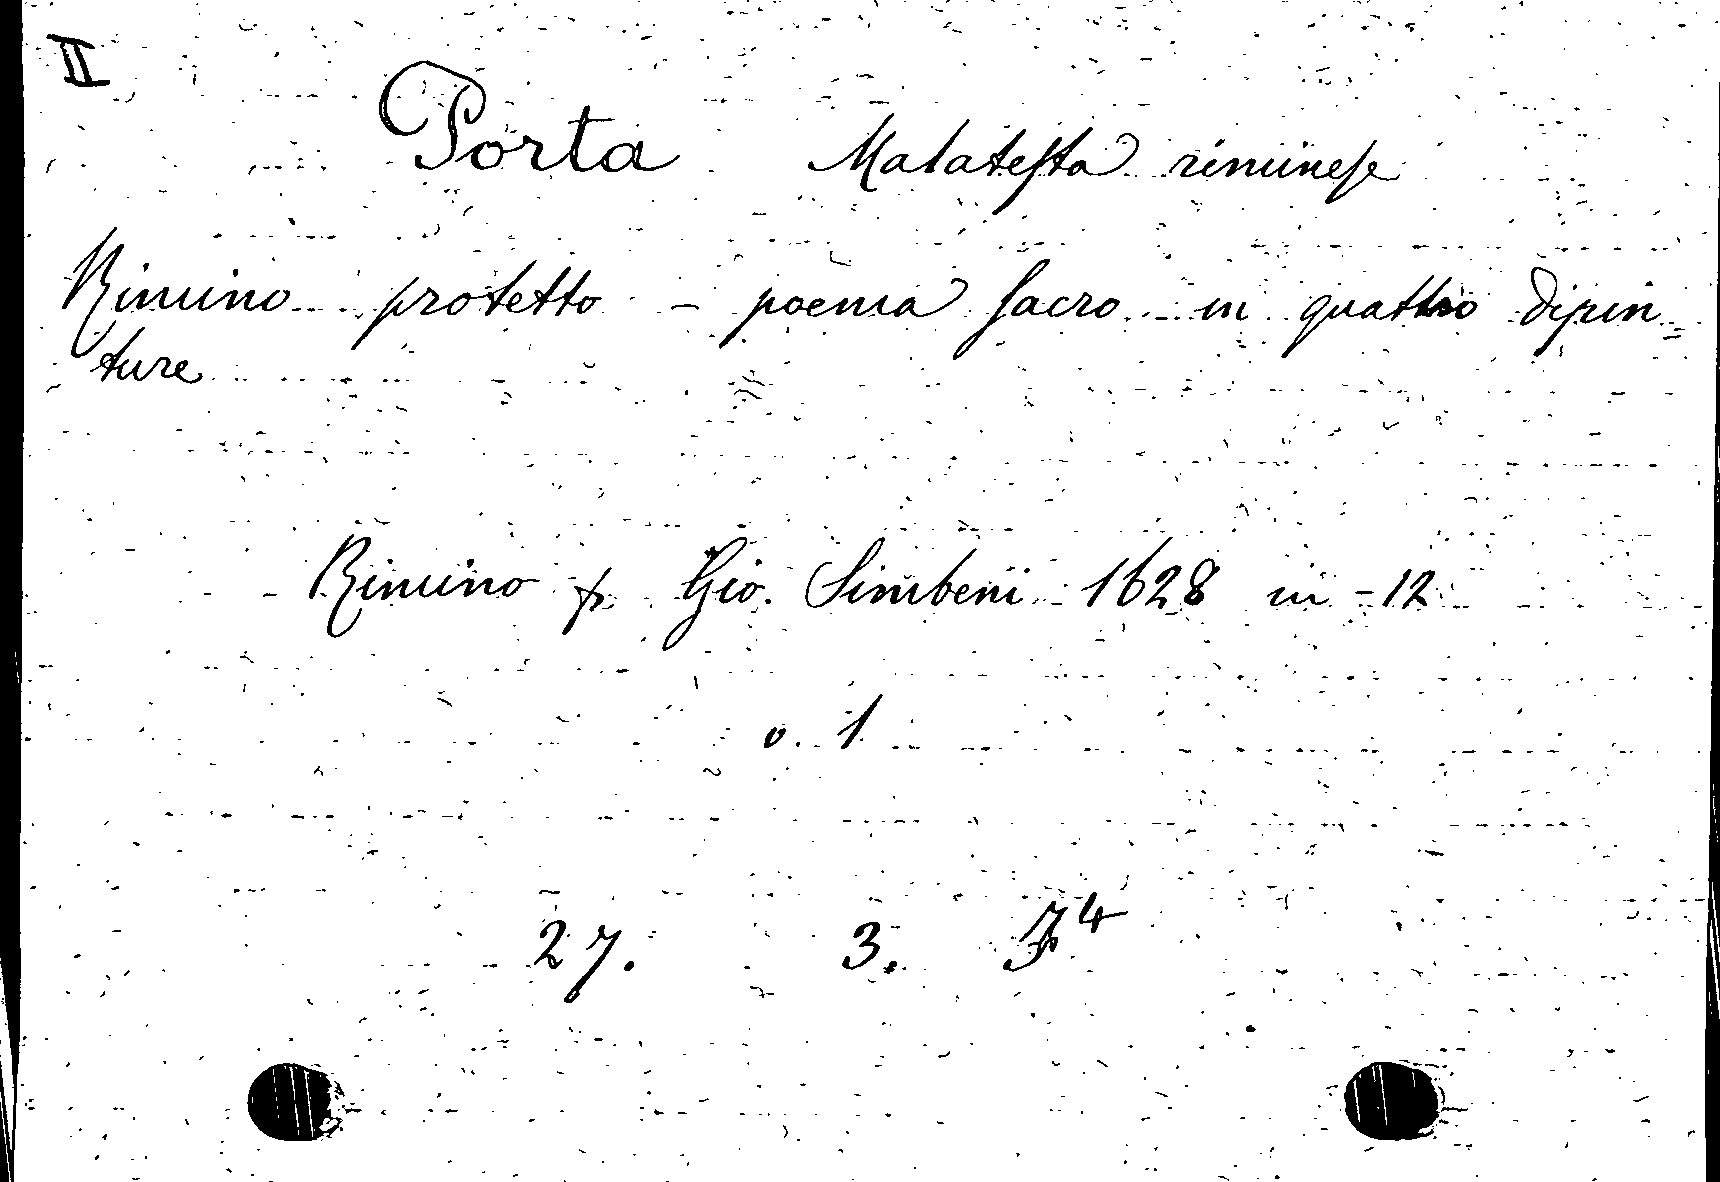 II
Porta Malatesta riminese
Rimino protetto - poema sacro in quattro dipin=
ture
Rimino p. Gio. Simbeni 1628 in -12
v. 1
27. 3.